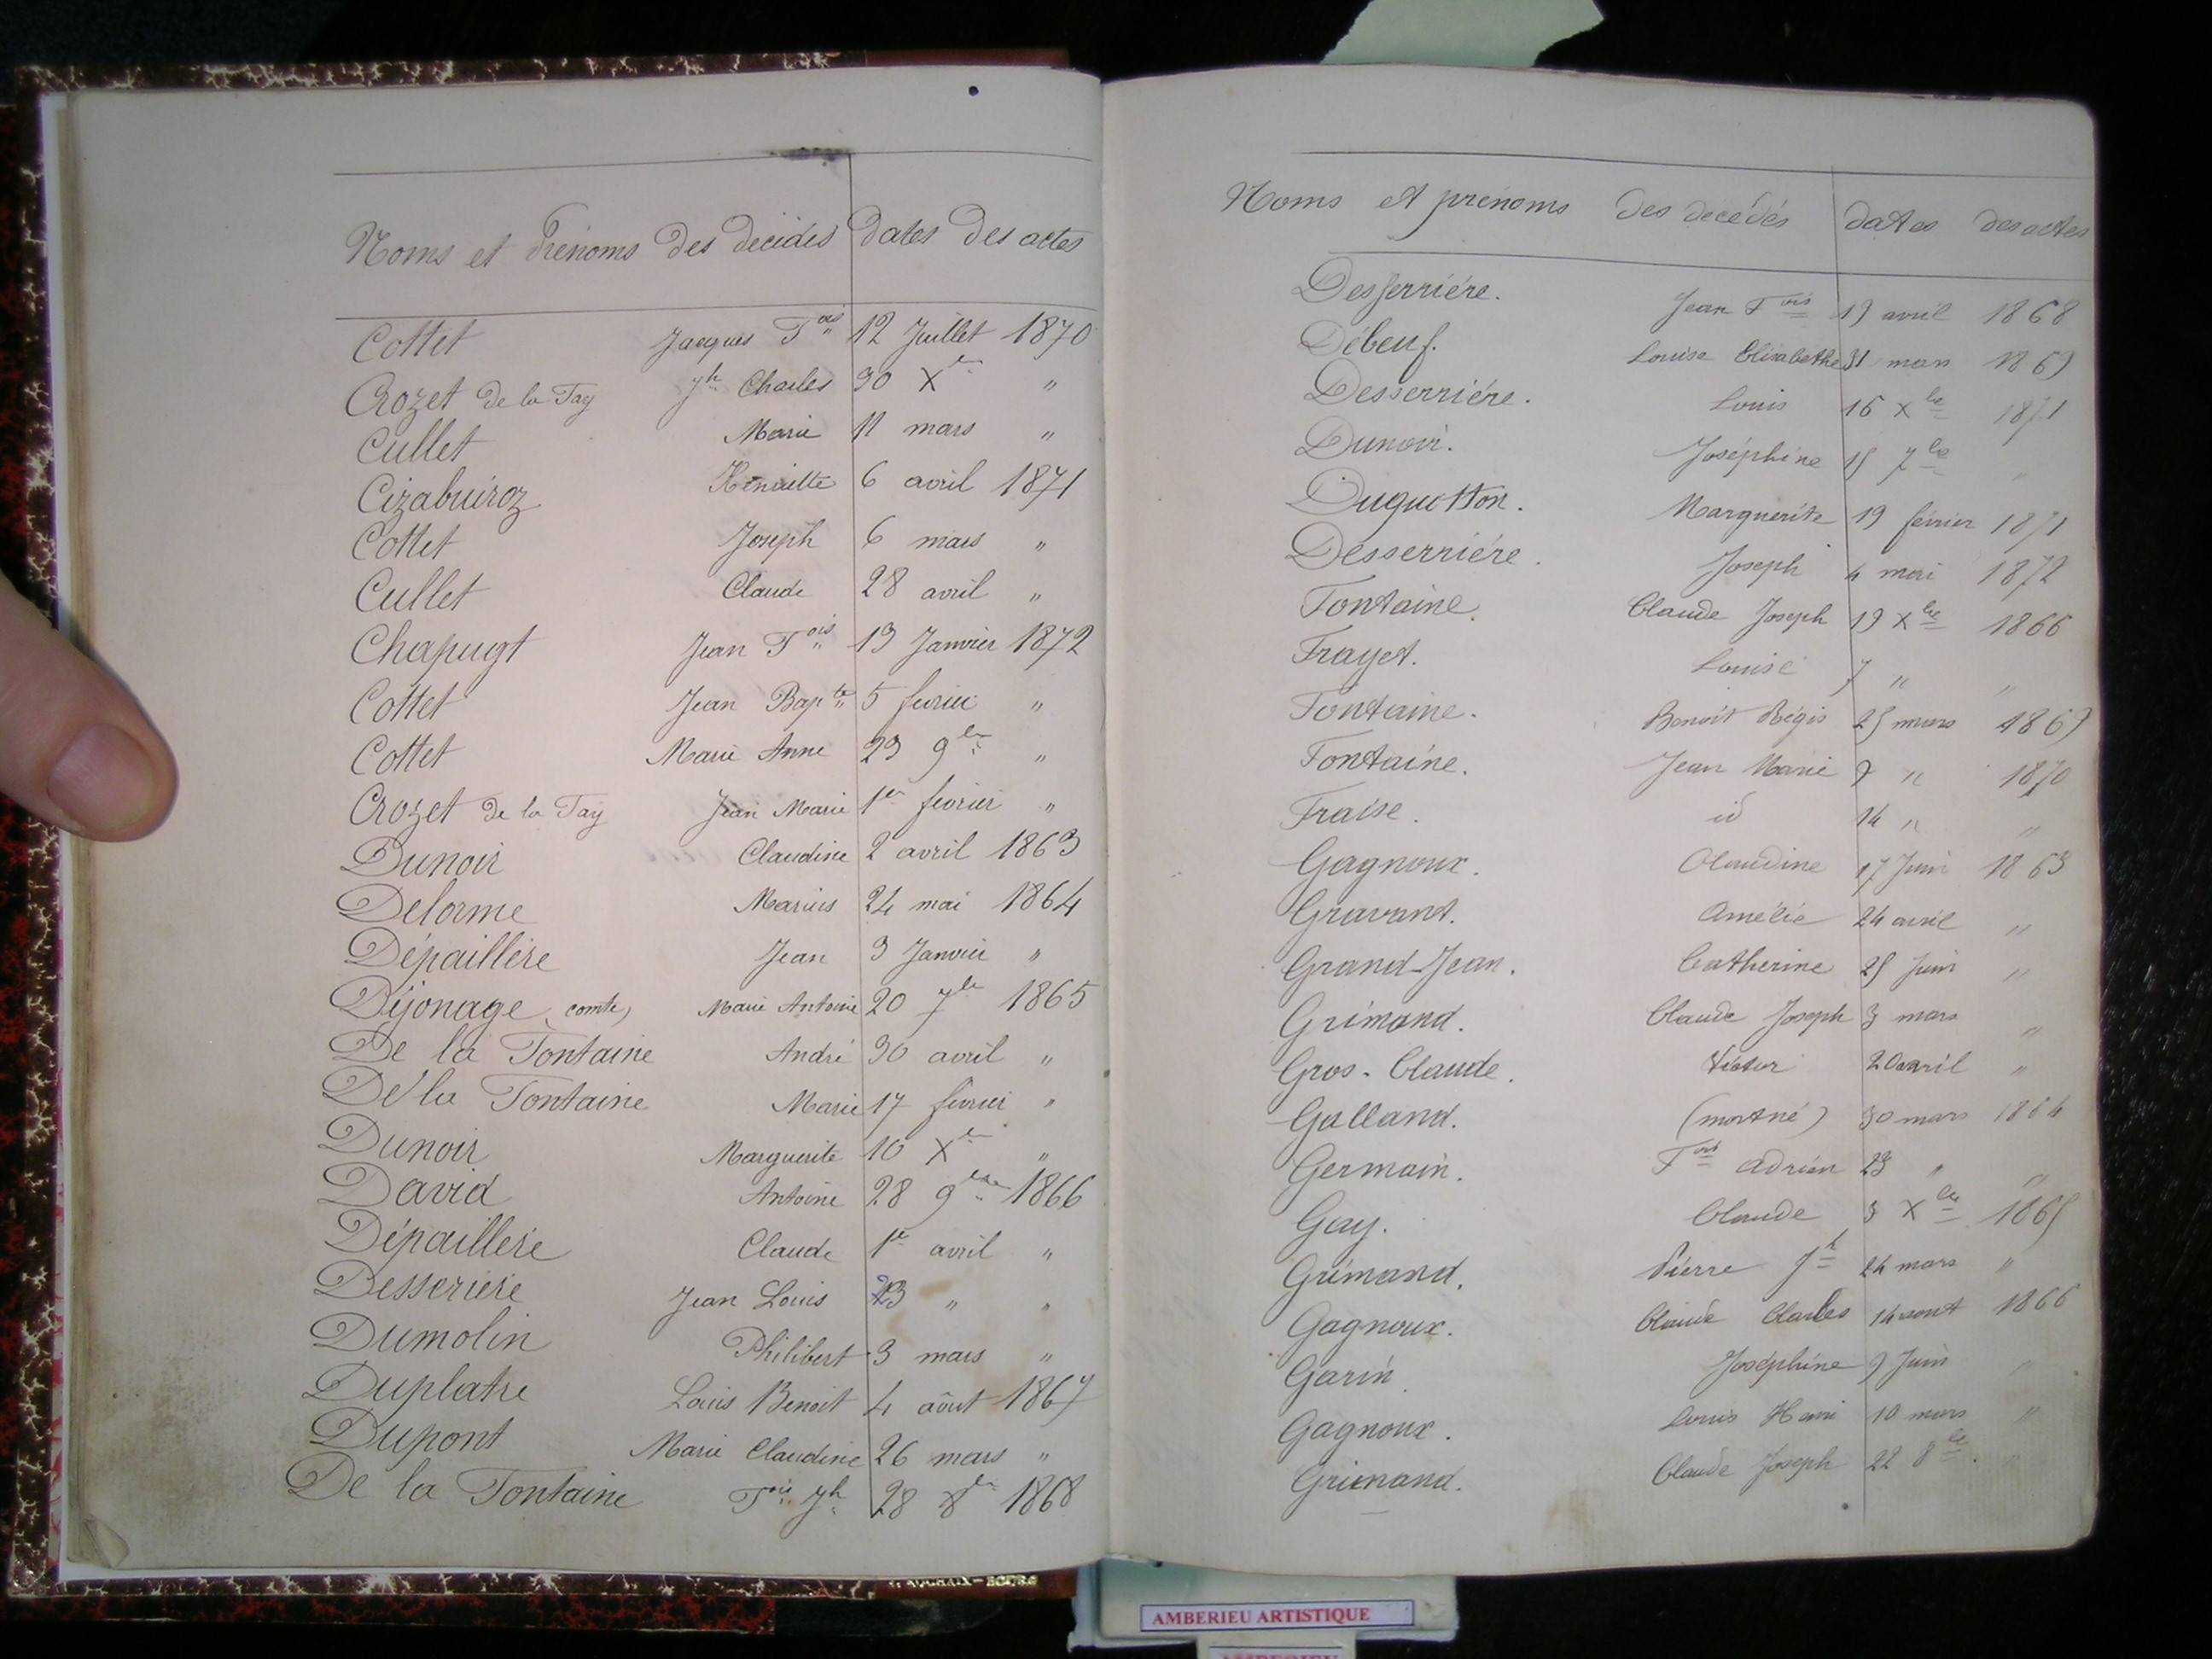 Noms et Prénoms des décédés dates des actes
Cottet Jacques Fois 12 Juillet 1870
Crozet de la Fay Jh Charles 30 Xbre "
Cullet Marie 11 mars "
Cizabuiroz Henriette 6 avril 1871
Cottet Joseph 6 mars "
Cullet Claude 28 avril "
Chapugt Jean Fois 13 Janvier 1872
Cottet Jean Bapte 5 fevrier "
Cottet Marie Anne 23 9bre "
Crozet de la Fay Jean Marie 1er fevrier "
Dunoir Claudine 2 avril 1863
Delorme Marius 24 mai 1864
Dépaillère Jean 3 Janvier "
Dijonage, comte, Marie Antoine 20 7bre 1865
De la Fontaine André 30 avril "
De la Fontaine Marie 17 fevrier "
Dunoir Marguerite 10 Xbre "
David Antoine 28 9bre 1866
Dépaillère Claude 1er avril "
Desserière Jean Louis 23 " "
Dumolin Philibert 3 mars "
Duplatre Louis Benoit 4 aôut 1867
Dupont Marie Claudine 26 mars "
De la Fontaine Fois Jh 28 8bre 1868
Noms et prénoms des decédés dates des actes
Desserriére. Jean Fois 19 avril 1868
Débeuf. Louise Elisabethe 31 mars 1869
Desserriére. Louis 16 Xbre 1871
Dunoir. Joséphine 15 7bre "
Duguetton. Marguerite 19 février 1871
Desserriére. Joseph 4 mai 1872
Fontaine. Claude Joseph 19 Xbre 1866
Frayet. Louise 7 " "
Fontaine. Benoit Régis 25 mars 1869
Fontaine. Jean Marie 9 " 1870
Fraise. id 14 " "
Gagnoux. Claudine 17 Juin 1863
Gravant. Amélie 24 avril "
Grand-Jean. Catherine 25 Juin "
Grimand. Claude Joseph 3 mars "
Gros-Claude. Victor 20 avril "
Galland. (mortné) 30 mars 1864
Germain. Fois Adrien 23 " "
Gay. Claude 3 Xbre 1865
Grimand. Pierre Jh 24 mars "
Gagnoux. Claude Charles 14 aout 1866
Garin Joséphine 9 Juin "
Gagnoux. Louis Henri 10 mars "
Grimand. Claude Joseph 22 8bre. "
AMBERIEU ARTISTIQUE
AMBERIEU